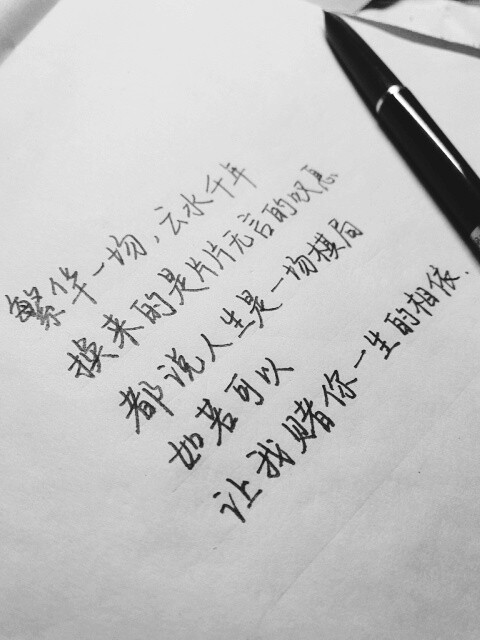 繁华一场，云水千年
换来的是片片无言的叹息
都说人生是一场棋局
如若可以
让我赌你一生的相依.